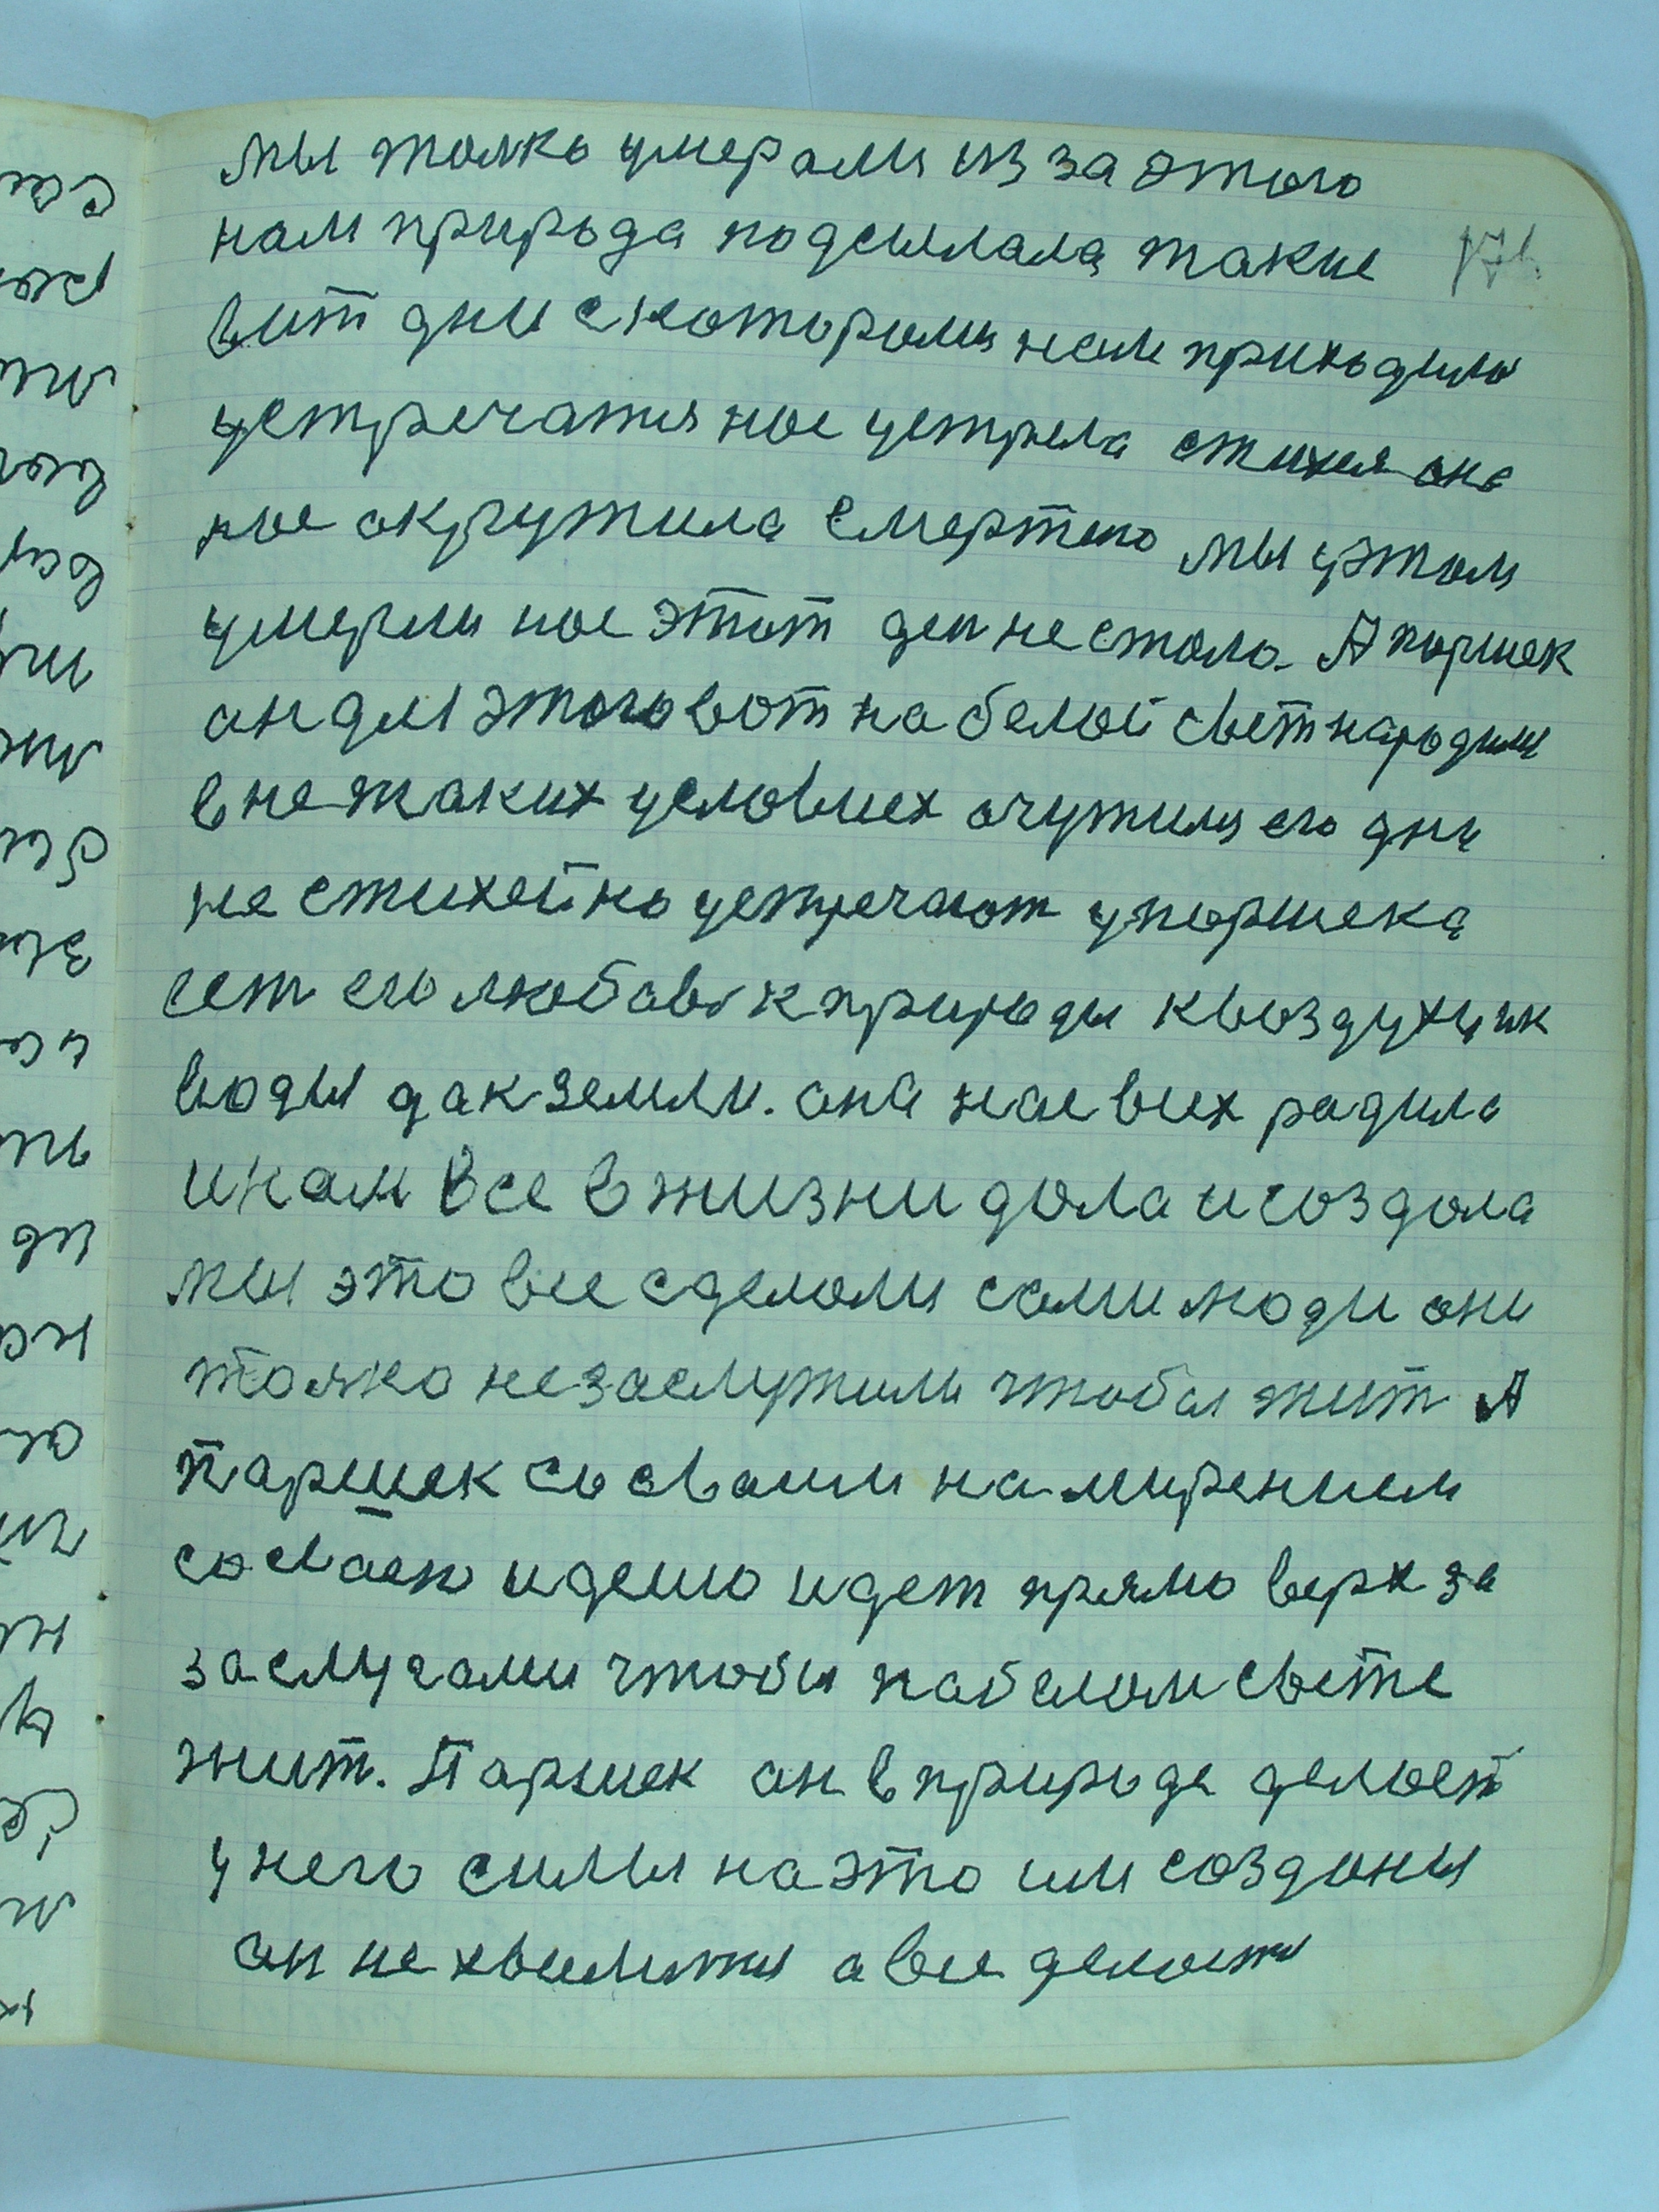 мы толко умерали из за этого
нам природа подсылала такие
вит дни скоторыми нам приходило
устречатия нас устрела стихея она
нас акружила смертею мы уэтом
умерли нас этот ден не стало. А паршек
ан для этого вот на белой свет народили
в не таких условиех очутили его дни
не стихейно устречают упаршека
ест его любовь к природы квоздуху ик
воды дак земли. она нас всех радила
инам все в жизни дала исоздала
мы это все сделали сами люди они
толко незаслужили чтобы жит А
паршек сосваим намирением
сосваею идеию идет прямо верх за
заслугами чтобы набелом свете
жит. Паршек ан в природе делает
у него силы на это им созданы
ан не хвылится а все делает